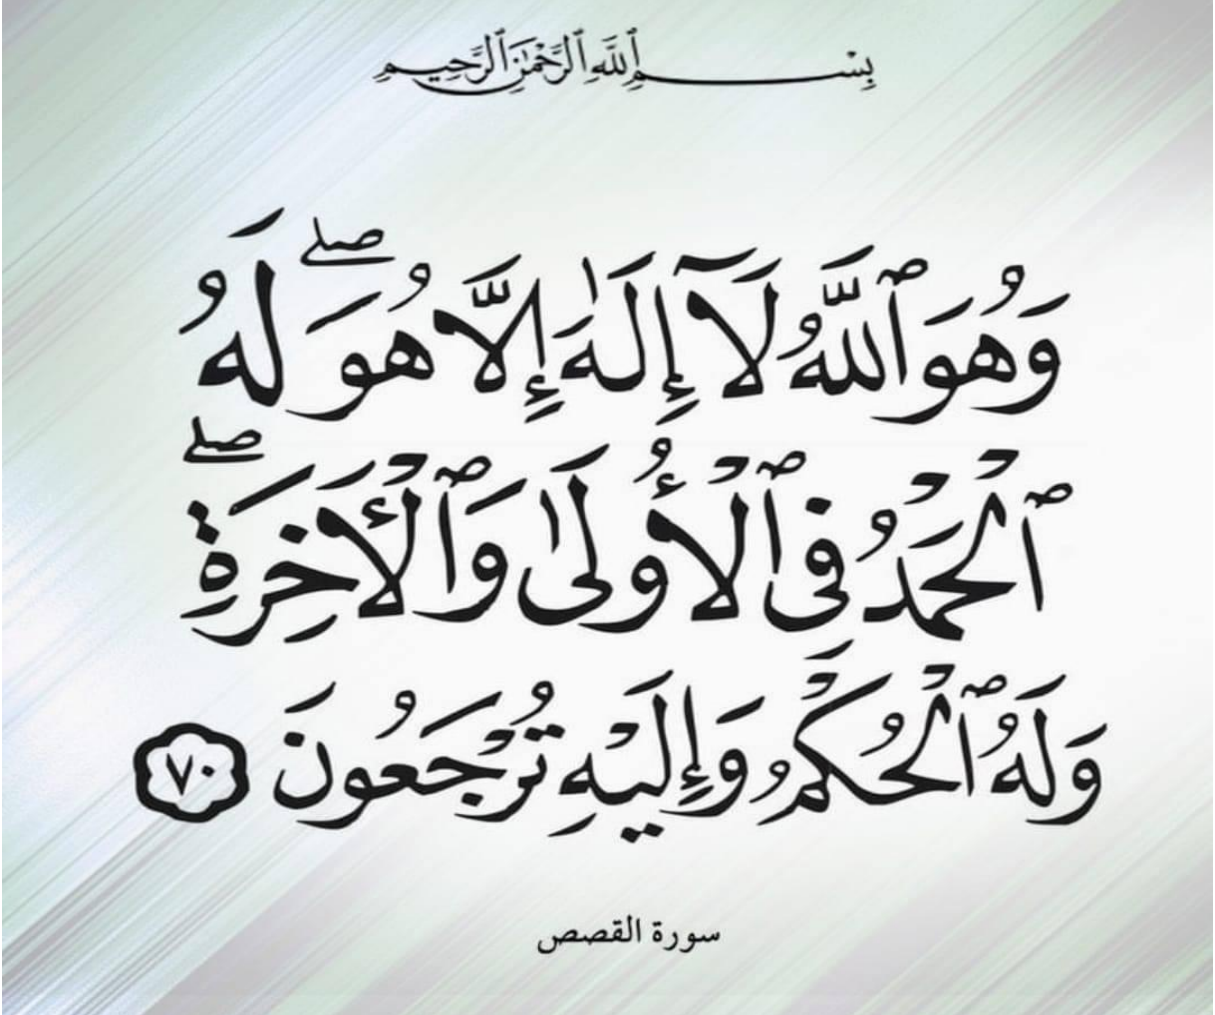 بِسْمِ ٱللَّهِ ٱلرَّحْمَٰنِ ٱلرَّحِيمِ
وَهُوَ ٱللَّهُ لَآ إِلَٰهَ إِلَّا هُوَ ۖ لَهُ
ٱلْحَمْدُ فِى ٱلْأُولَىٰ وَٱلْأَخِرَةِ ۖ
وَلَهُ ٱلْحُكْمُ وَإِلَيْهِ تُرْجَعُونَ ٧٠
سورة القصص